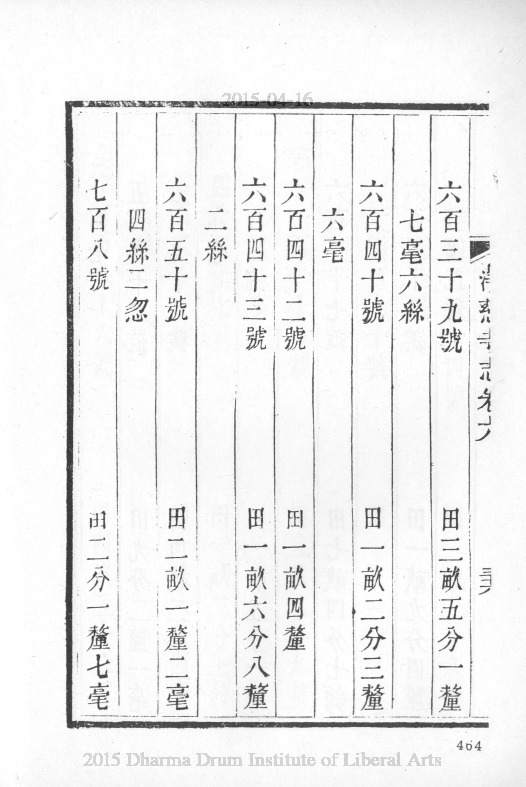 2015-04-16
寺志卷六
六百三十九號 田三畝五分一釐
七毫六絲
六百四十號 田一畝二分三釐
六毫
六百四十二號 田一畝四釐
六百四十三號 田一畝六分八釐
二絲
六百五十號 田二畝一釐二毫
四絲二忽
七百八號 田二分一釐七毫
464
2015 Dharma Drum Institute of Liberal Arts